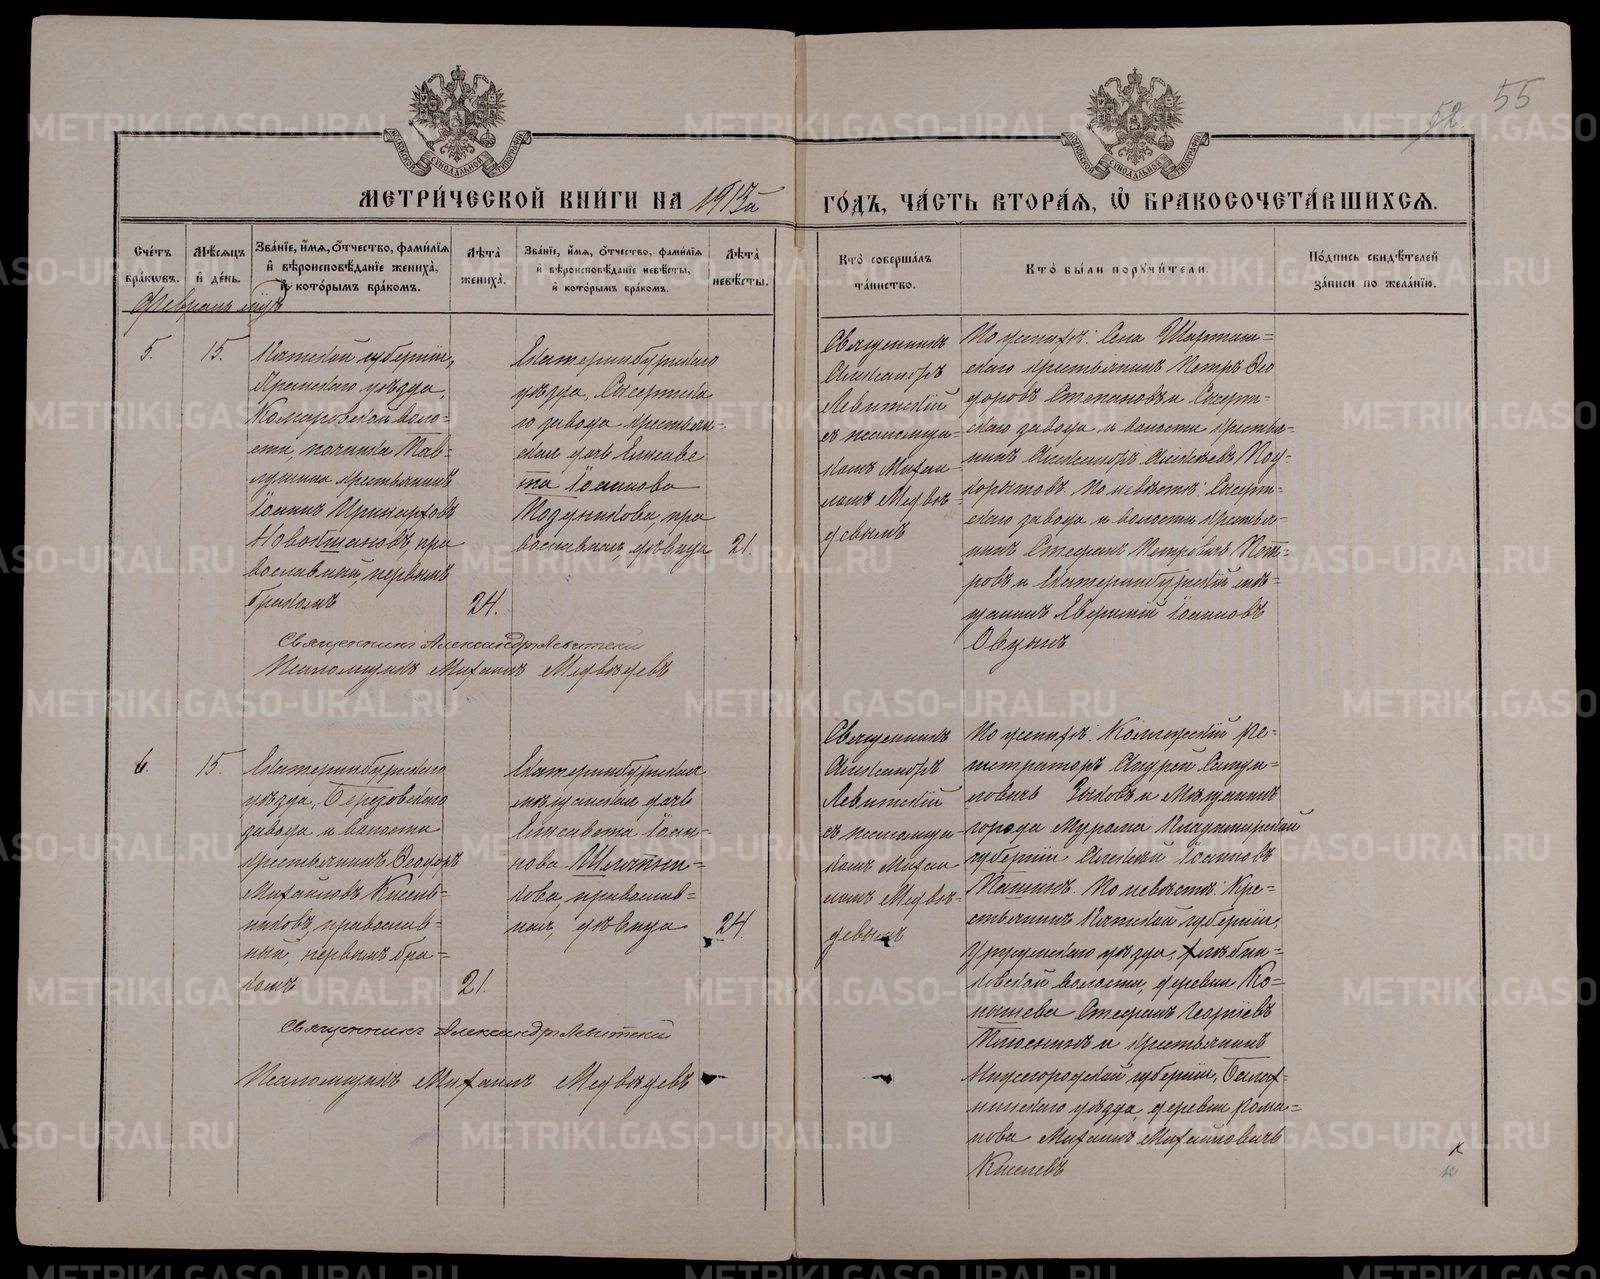 55
52
МЕТРИ́ЧЕСКОЙ КНИ́ГИ НА 1913й ГО́ДЪ, ЧА́СТЬ ВТОРА́Я, Ѡ҆ БРАКОСОЧЕТА́ВШИХСЯ.
Сче́тъ бра́кѡвъ.
Мѣ́сяцъ и҆ де́нь.
Зва́нїе, и҆́мя, ѻ҆́тчество, фами́лїя и҆ вѣроисповѣ́данїе жениха̀, и҆ кото́рымъ бра́комъ.
Лѣ́та жениха̀.
Зва́нїе, и҆́мя, ѻ҆́тчество, фами́лїя и҆ вѣроисповѣ́данїе невѣ́сты, и҆ кото́рымъ бра́комъ.
Лѣ́та невѣ́сты.
Кто̀ соверша́лъ та́инство.
Кто̀ бы́ли поручи́тели.
По́дпись свидѣ́телей за́писи по жела́нїю.
Февраль мцъ
5.
15.
Вятской губерніи,
Яранскаго уѣзда,
Комаровской воло-
сти, починка Пав-
лушина крестьянинъ
Іоаннъ Иринарховъ
Новокшановъ, пра
вославный, первымъ
бракомъ
24.
Екатеринбургскаго
уѣзда, Сысертска
го завода крестьян-
ская дочь Елисаве
та Іоаннова
православная, дѣвица
21.
Священникъ
Александръ
Левитскій
съ псаломщи-
комъ Михаи-
ломъ Медвѣ-
девымъ
По женихѣ: Села Шарташ-
скаго крестьянинъ Петръ Ѳео
доровъ Степановъ и Сысерт-
скаго завода и волости крестья-
нинъ Александръ Алексѣевъ Под-
корытовъ. По невѣстѣ: Сысерт-
скаго завода и волости крестья-
нинъ Стефанъ Петровичъ Пет-
ровъ и Екатеринбургскій мѣ-
щанинъ Евгеній Іоанновъ
Священникъ Александръ Левитскій
Псаломщикъ Михаилъ Медвѣдевъ
6.
15.
Екатеринбургскаго
уѣзда, Березовскаго
завода и волости
крестьянинъ Ѳеодоръ
Михаиловъ Кисель-
никовъ, православ-
ный, первымъ бра-
комъ
21.
Екатеринбургская
мѣщанская дочь
Елисавета Іоан-
нова
православ-
ная, дѣвица
24.
Священникъ
Александръ
Левитскій
съ псаломщи-
комъ Михаи-
ломъ Медвѣ-
девымъ
По женихѣ: Коллежскій ре-
гистраторъ Андрей Самуи-
ловичъ Зыковъ и мѣщанинъ
города Мурома Владимирской
губерніи Алексѣй Іоанновъ
Пашинъ. По невѣстѣ: Кре-
стьянинъ Вятской губерніи,
Уржумскаго уѣзда,
волости, деревни Ко-
нышева Стефанъ Георгіевъ
и крестьянинъ
Нижегородской губерніи, Балах-
нинскаго уѣзда, деревни Рома-
нова Михаилъ Михайловичъ
Киселевъ
Священникъ Александръ Левитскій
Псаломщикъ Михаилъ Медвѣдевъ
METRIKI.GASO-URAL.RU